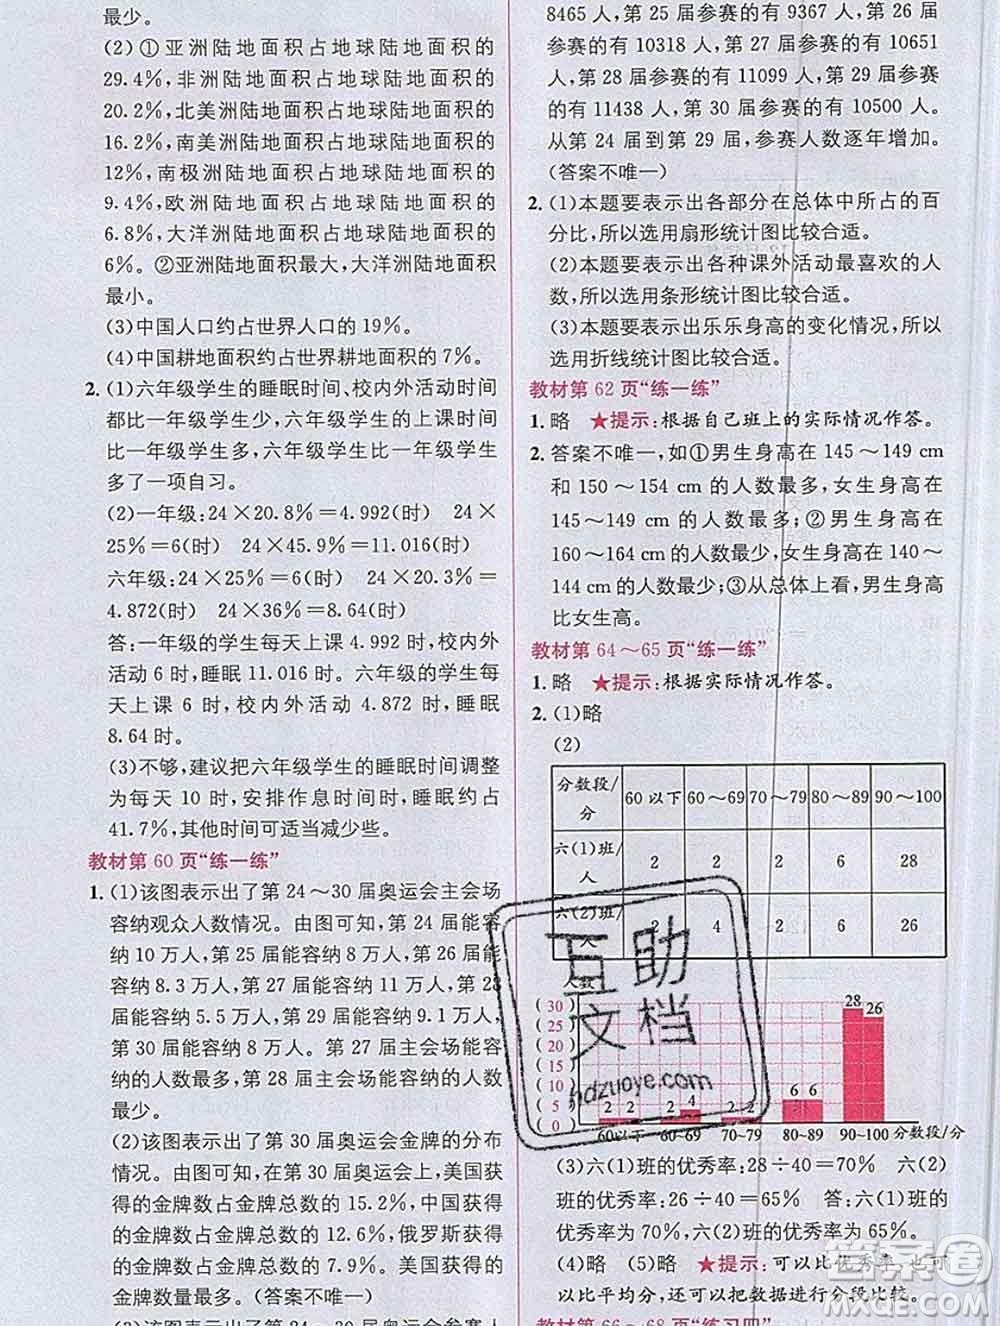 最少。
(2)①亚洲陆地面积占地球陆地面积的
29.4%,非洲陆地面积占地球陆地面积的
20.2%,北美洲陆地面积占地球陆地面积的
16.2%,南美洲陆地面积占地球陆地面积的
12%,南极洲陆地面积占地球陆地面积的
9.4%,欧洲陆地面积占地球陆地面积的
6.8%,大洋洲陆地面积占地球陆地面积的
6%。②亚洲陆地面积最大,大洋洲陆地面积
最小。
(3)中国人口约占世界人口的19%。
(4)中国耕地面积约占世界耕地面积的7%。
2. (1)六年级学生的睡眠时间、校内外活动时间
都比一年级学生少,六年级学生的上课时间
比一年级学生多,六年级学生比一年级学生
多了一项自习。
(2)一年级:24×20.8%=4.992(时) 24×
25%=6(时) 24×45.9%=11.016(时)
六年级:24×25%=6(时) 24×20.3%=
4.872(时) 24×36%=8.64(时)
答:一年级的学生每天上课4.992时,校内外
活动6时,睡眠11.016时。六年级的学生每
天上课6时,校内外活动4.872时,睡眠
8.64时。
(3)不够,建议把六年级学生的睡眠时间调整
为每天10时,安排作息时间时,睡眠约占
41.7%,其他时间可适当减少些。
教材第60页“练一练”
1. (1)该图表示出了第24~30届奥运会主会场
容纳观众人数情况。由图可知,第24届能容
纳10万人,第25届能容纳6万人,第26届能
容纳8.3万人,第27届能容纳11万人,第28
届能容纳5.5万人,第29届能容纳9.1万人,
第30届能容纳8万人。第27届主会场能容纳
的人数最多,第28届主会场能容纳的人数
最少。
(2)该图表示出了第30届奥运会金牌的分布
情况。由图可知,在第30届奥运会上,美国获
得的金牌数占金牌总数的15.2%,中国获得
的金牌数占金牌总数的12.6%,俄罗斯获得的
金牌数占金牌总数的7.9%。美国获得的金牌
数量最多。(答案不唯一)
8465人,第25届参赛的有9367人,第26
届参赛的有10318人,第27届参赛的有10651
人,第28届参赛的有11099人,第29届参赛
的有11438人,第30届参赛的有10500人。
从第24届到第29届,参赛人数逐年增加。
(答案不唯一)
2. (1)本题要表示出各部分在总体中所占的百
分比,所以选用扇形统计图比较合适。
(2)本题要表示出各种课外活动最喜欢的人
数,所以选用条形统计图比较合适。
(3)本题要表示出乐乐身高的变化情况,所以
选用折线统计图比较合适。
教材第62页“练一练”
1. 略 ★提示:根据自己班上的实际情况作答。
2. 答案不唯一,如①男生身高在145~149 cm
和150~154 cm的人数最多,女生身高在
145~149 cm的人数最多;②男生身高在
160~164 cm的人数最少,女生身高在140~
144 cm的人数最少;③从总体上看,男生身高
比女生高。
教材第64~65页“练一练”
1. 略 ★提示:根据实际情况作答。
2. (1)略
(2)
分数段/分 60以下 60~69 70~79 80~89 90~100
六(1)班/人 2 2 2 6 28
六(2)班/人 2 4 2 6 26
人数
(30)
(25)
(20)
(15)
(10)
(5)
(0)
2 2 2 4 2 2 6 6 28 26
60以下 60~69 70~79 80~89 90~100 分数段/分
(3)六(1)班的优秀率:28÷40=70% 六(2)
班的优秀率:26÷40=65% 答:六(1)班的
优秀率为70%,六(2)班的优秀率为65%。
(4)略 (5)略 ★提示:可以比优秀率,也可
以比平均分,还可以把数据进行分段比较。
教材第66~68页“练习四”
互助
文档
hdzuoye.com
答案圈
MXQE.COM